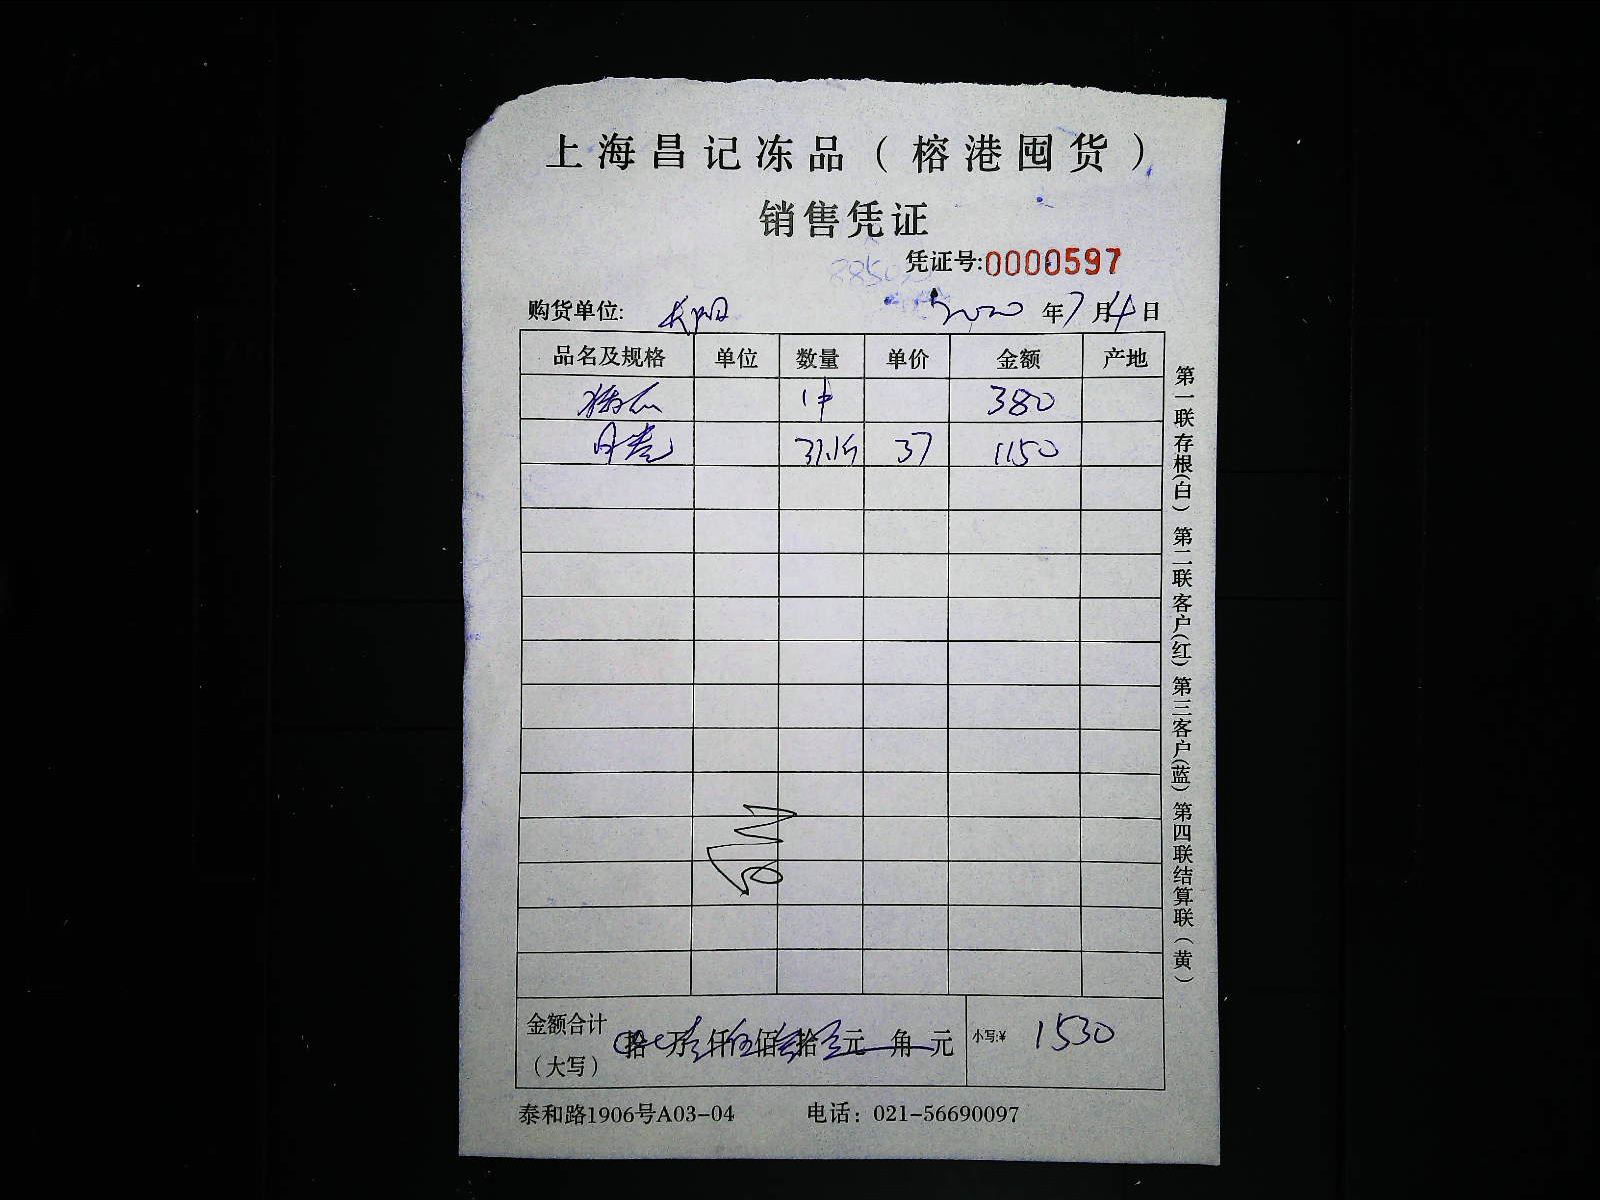 上海昌记冻品（榕港囤货）
销售凭证
凭证号:0000597
购货单位: 长阳 2020 年 7 月 4 日
品名及规格 单位 数量 单价 金额 产地
1件 380
月亮 31.15 37 1150
金额合计（大写） 拾 万壹仟伍佰叁拾元 角 元 小写:¥ 1530
泰和路1906号A03-04 电话：021-56690097
第一联存根(白) 第二联客户(红) 第三客户(蓝) 第四联结算联（黄）